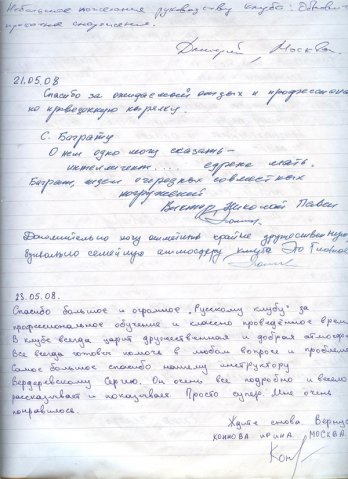 Небольшое пожелание руководству клуба: Обновить
прокатное снаряжение.
Дмитрий, Москва.
21.05.08
Спасибо за
отдых и профессиона
но проведенную
С. Баграту
О нем одно могу сказать-
интеллигент.... едрена мать.
Баграт, ждем очередных совместных
погружений
Виктор, Николай, Павел
Дополнительно могу отметить крайне дружественную
семейную атмосферу клуба. Это Главное
28.05.08.
Спасибо большое и огромное „Русскому клубу" за
профессиональное обучение и классно проведённое время
В клубе всегда царит дружественная и добрая атмосф
Все всегда готовы помочь в любом вопросе и проблеме
Самое большое спасибо нашему инструктору
Бердеревскому Сергею. Он очень все подробно и весело
рассказывает и показывает. Просто супер. Мне очень
понравилось.
Ждите снова. Вернус
ИРИНА МОСКВА